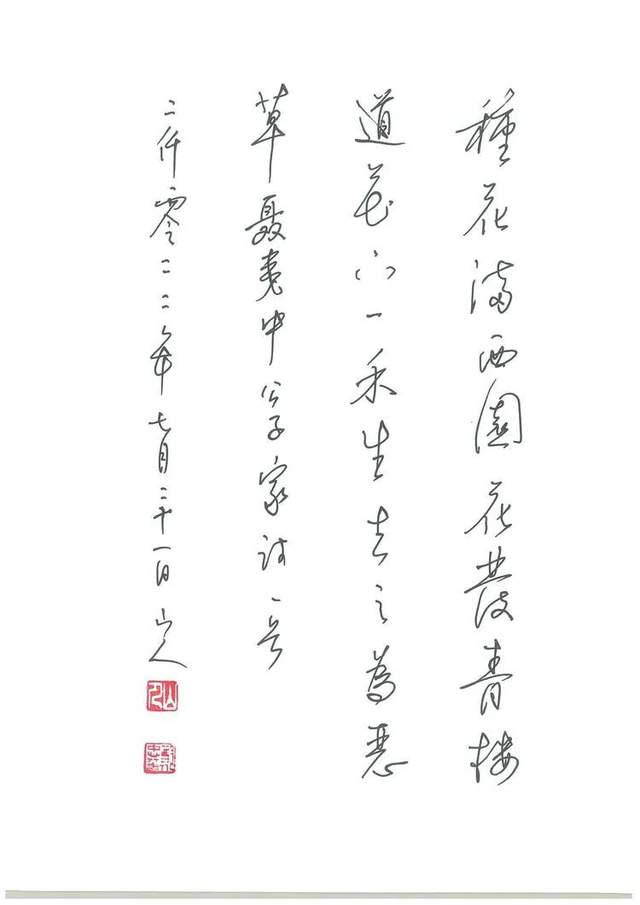 種花滿西園花發青樓
道花下一禾生去之為惡
草聶夷中公子家诗一首
二仟零二二年七月二十一日山人
山人